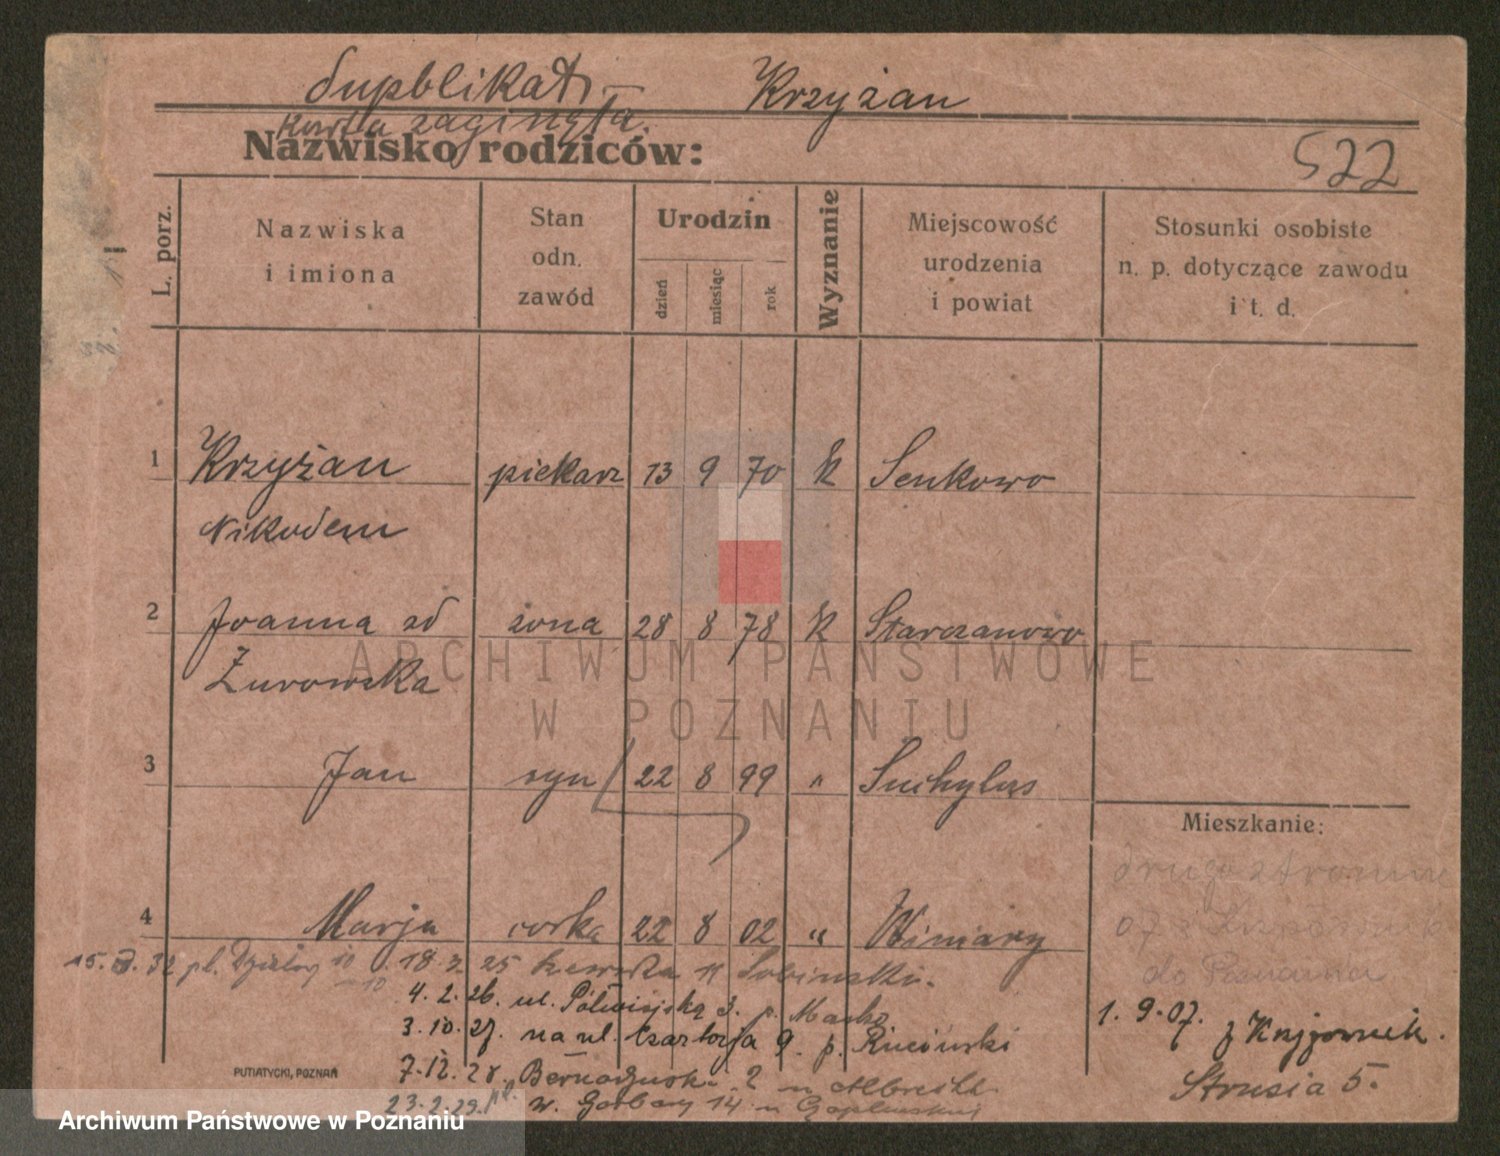 dupblikat – Krzyżan
karta zaginęła.
Nazwisko rodziców:
522
L. porz.
Nazwiska i imiona
Stan odn. zawód
Urodzin
dzień
miesiąc
rok
Wyznanie
Miejscowość urodzenia i powiat
Stosunki osobiste n. p. dotyczące zawodu i t. d.
1 Krzyżan piekarz 13 9 70 k Senkowo
Nikodem
2 Joanna zd żona 28 8 78 k Starczanowo
Żurowska
3 Jan syn 22 8 99 " Suchylas
Mieszkanie:
4 Marja córka 22 8 02 " Winiary
do Poznania
15. 32 pl. 10 18. 25 11 Sobinski.
4. 2. 26. ul. Półwiejska 3. p.
3. 10. 27. na ul. Czartorja 9. p. Rucinski
1. 9. 07.
7. 12. 28. 2
Strusia 5.
23. 2. 29. w. Garbary 14
PUTIATYCKI, POZNAŃ
ARCHIWUM PAŃSTWOWE
W POZNANIU
Archiwum Państwowe w Poznaniu